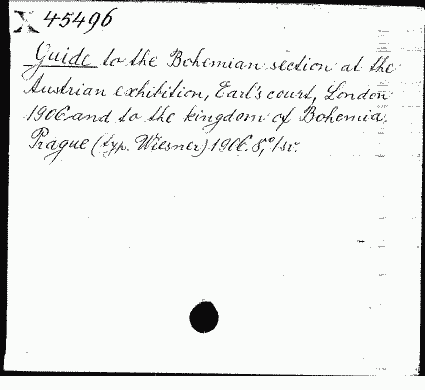 X 45496
Guide to the Bohemian section at the
Austrian exhibition, Earl's court, London
1906 and to the kingdom of Bohemia.
Prague (typ. Wiesner) 1906. 8,° 1 sv.